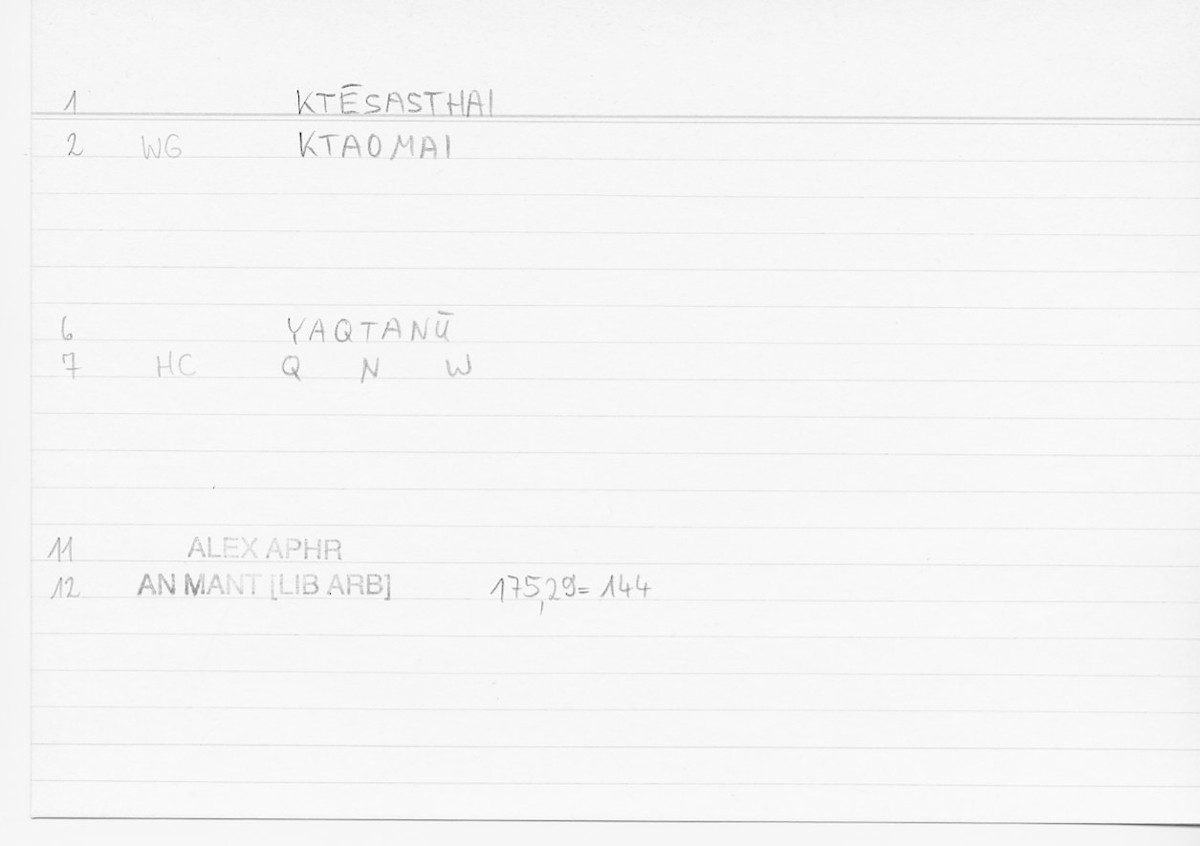 1 KTĒSASTHAI
2 WG KTAOMAI
6 YAQTANŪ
7 HC Q N W
11 ALEX APHR
12 AN MANT [LIB ARB] 175,29= 144